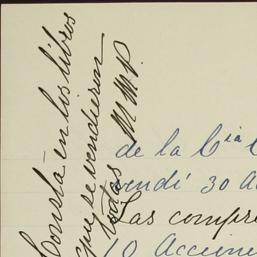 Consta en los libros
que se vendieron
todas M.M.P.
de la Cia
vendí 30 A
Las compré
10 Accione